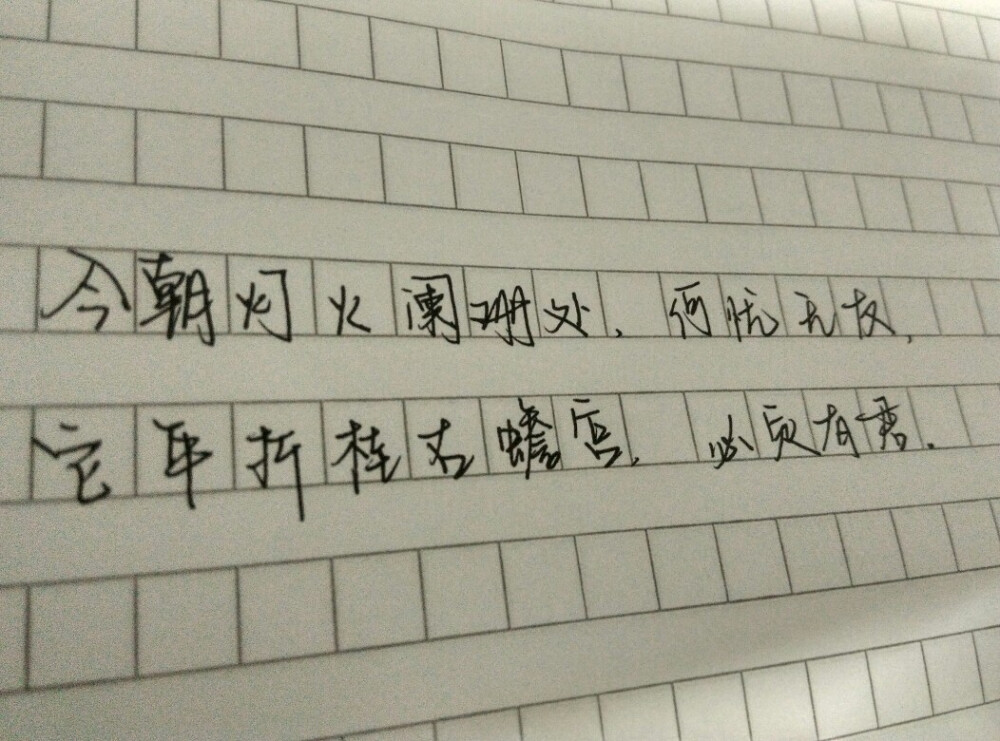 今朝灯火阑珊处，何忧无友，
它年折桂古蟾宫，必须有君。